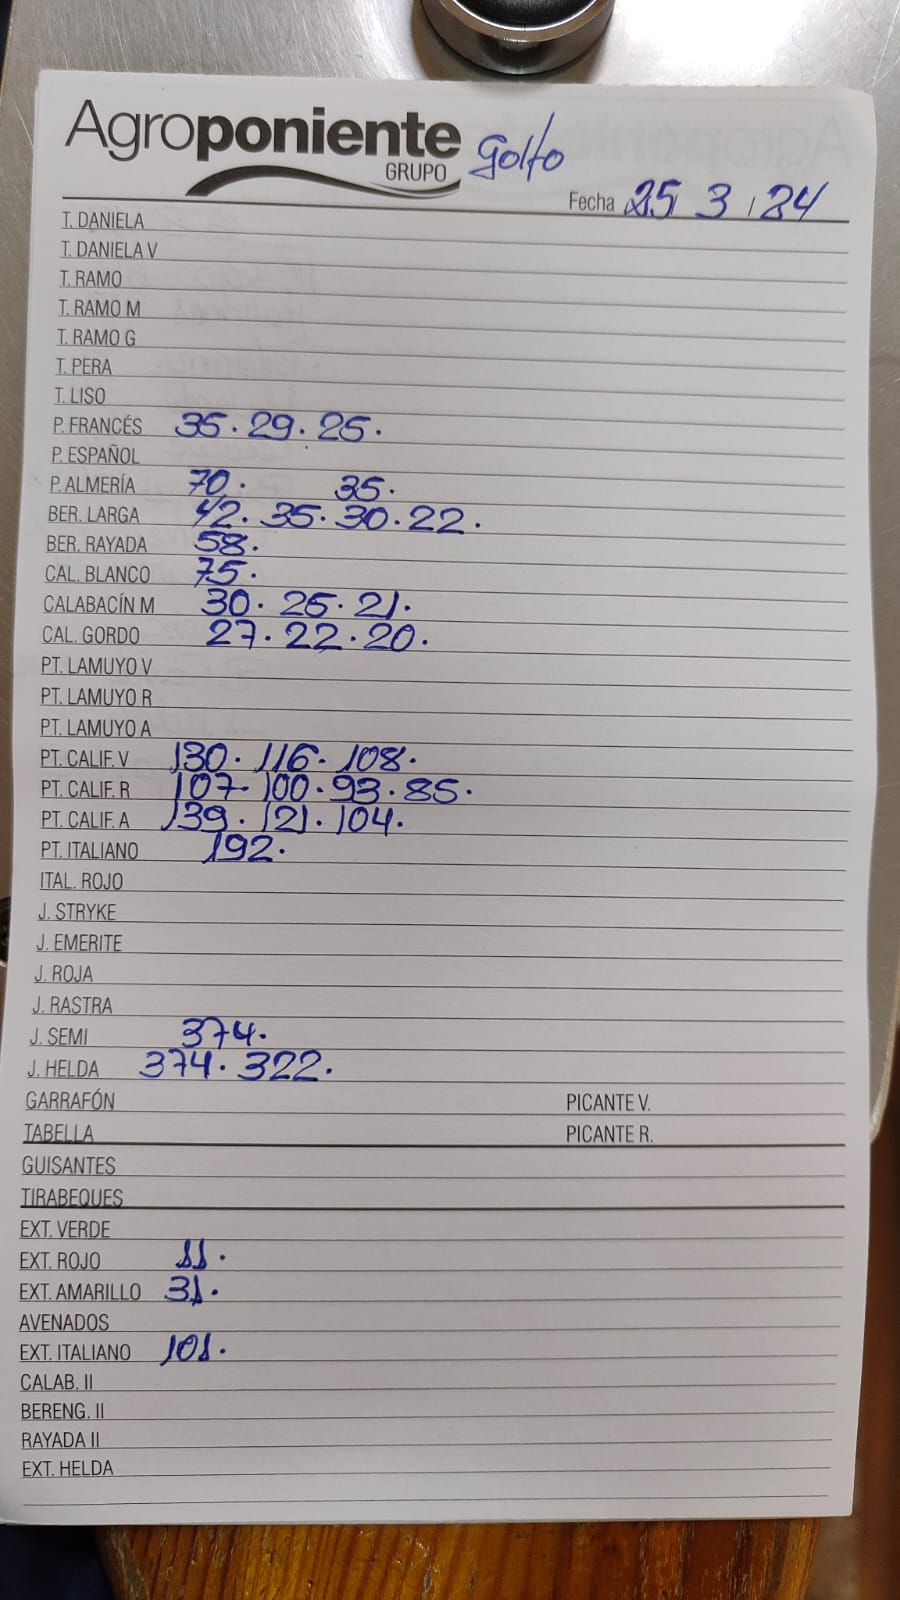 Agroponiente Golfo
GRUPO
Fecha 25/ 3 / 24
T. DANIELA
T. DANIELA V
T. RAMO
T. RAMO M
T. RAMO G
T. PERA
T. LISO
P. FRANCÉS 35. 29. 25.
P. ESPAÑOL
P. ALMERÍA 70. 35.
BER. LARGA 42. 35. 30. 22.
BER. RAYADA 58.
CAL. BLANCO 75.
CALABACÍN M 30. 25. 21.
CAL. GORDO 27. 22. 20.
PT. LAMUYO V
PT. LAMUYO R
PT. LAMUYO A
PT. CALIF. V 130. 116. 108.
PT. CALIF. R 107. 100. 93. 85.
PT. CALIF. A 139. 121. 104.
PT. ITALIANO 192.
ITAL. ROJO
J. STRYKE
J. EMERITE
J. ROJA
J. RASTRA
J. SEMI 374.
J. HELDA 374. 322.
GARRAFÓN PICANTE V.
TABELLA PICANTE R.
GUISANTES
TIRABEQUES
EXT. VERDE
EXT. ROJO 11.
EXT. AMARILLO 31.
AVENADOS
EXT. ITALIANO 101.
CALAB. II
BERENG. II
RAYADA II
EXT. HELDA